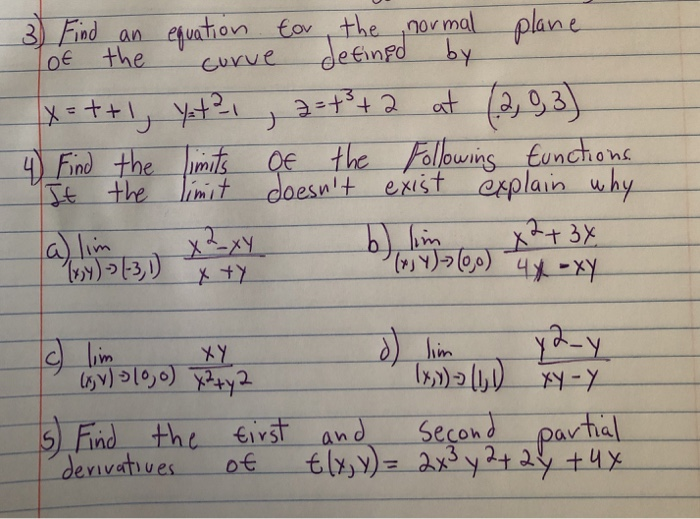 3) Find an equation for the normal plane
of the curve defined by
x = t+1, y=t²-1, z=t³+2 at (2,0,3)
4) Find the limits of the Following functions
If the limit doesn't exist explain why
a) lim (x,y)→(-3,1) x²-xy / x+y
b) lim (x,y)→(0,0) x²+3x / 4x-xy
c) lim (x,y)→(0,0) xy / x²+y²
d) lim (x,y)→(1,1) y²-y / xy-y
5) Find the first and second partial
derivatives of f(x,y) = 2x³y²+2y+4x